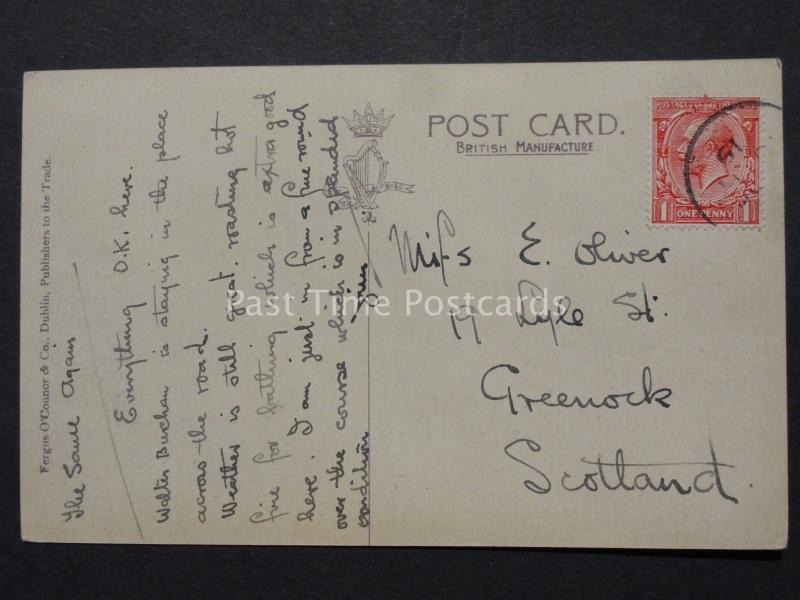 Fergus O'Connor & Co., Dublin, Publishers to the Trade.
The Same Again
Everything O.K. here.
Walter Buchan is staying in the place
across the road.
Weather is still great, roasting hot
fine for bathing which is extra good
here. I am just in from a fine round
over the course which is in splendid
condition
Jim
POST CARD.
BRITISH MANUFACTURE
Miss E. Oliver
19 Lyle St.
Greenock
Scotland.
POSTAGE REVENUE
1 ONE PENNY 1
Past Time Postcards